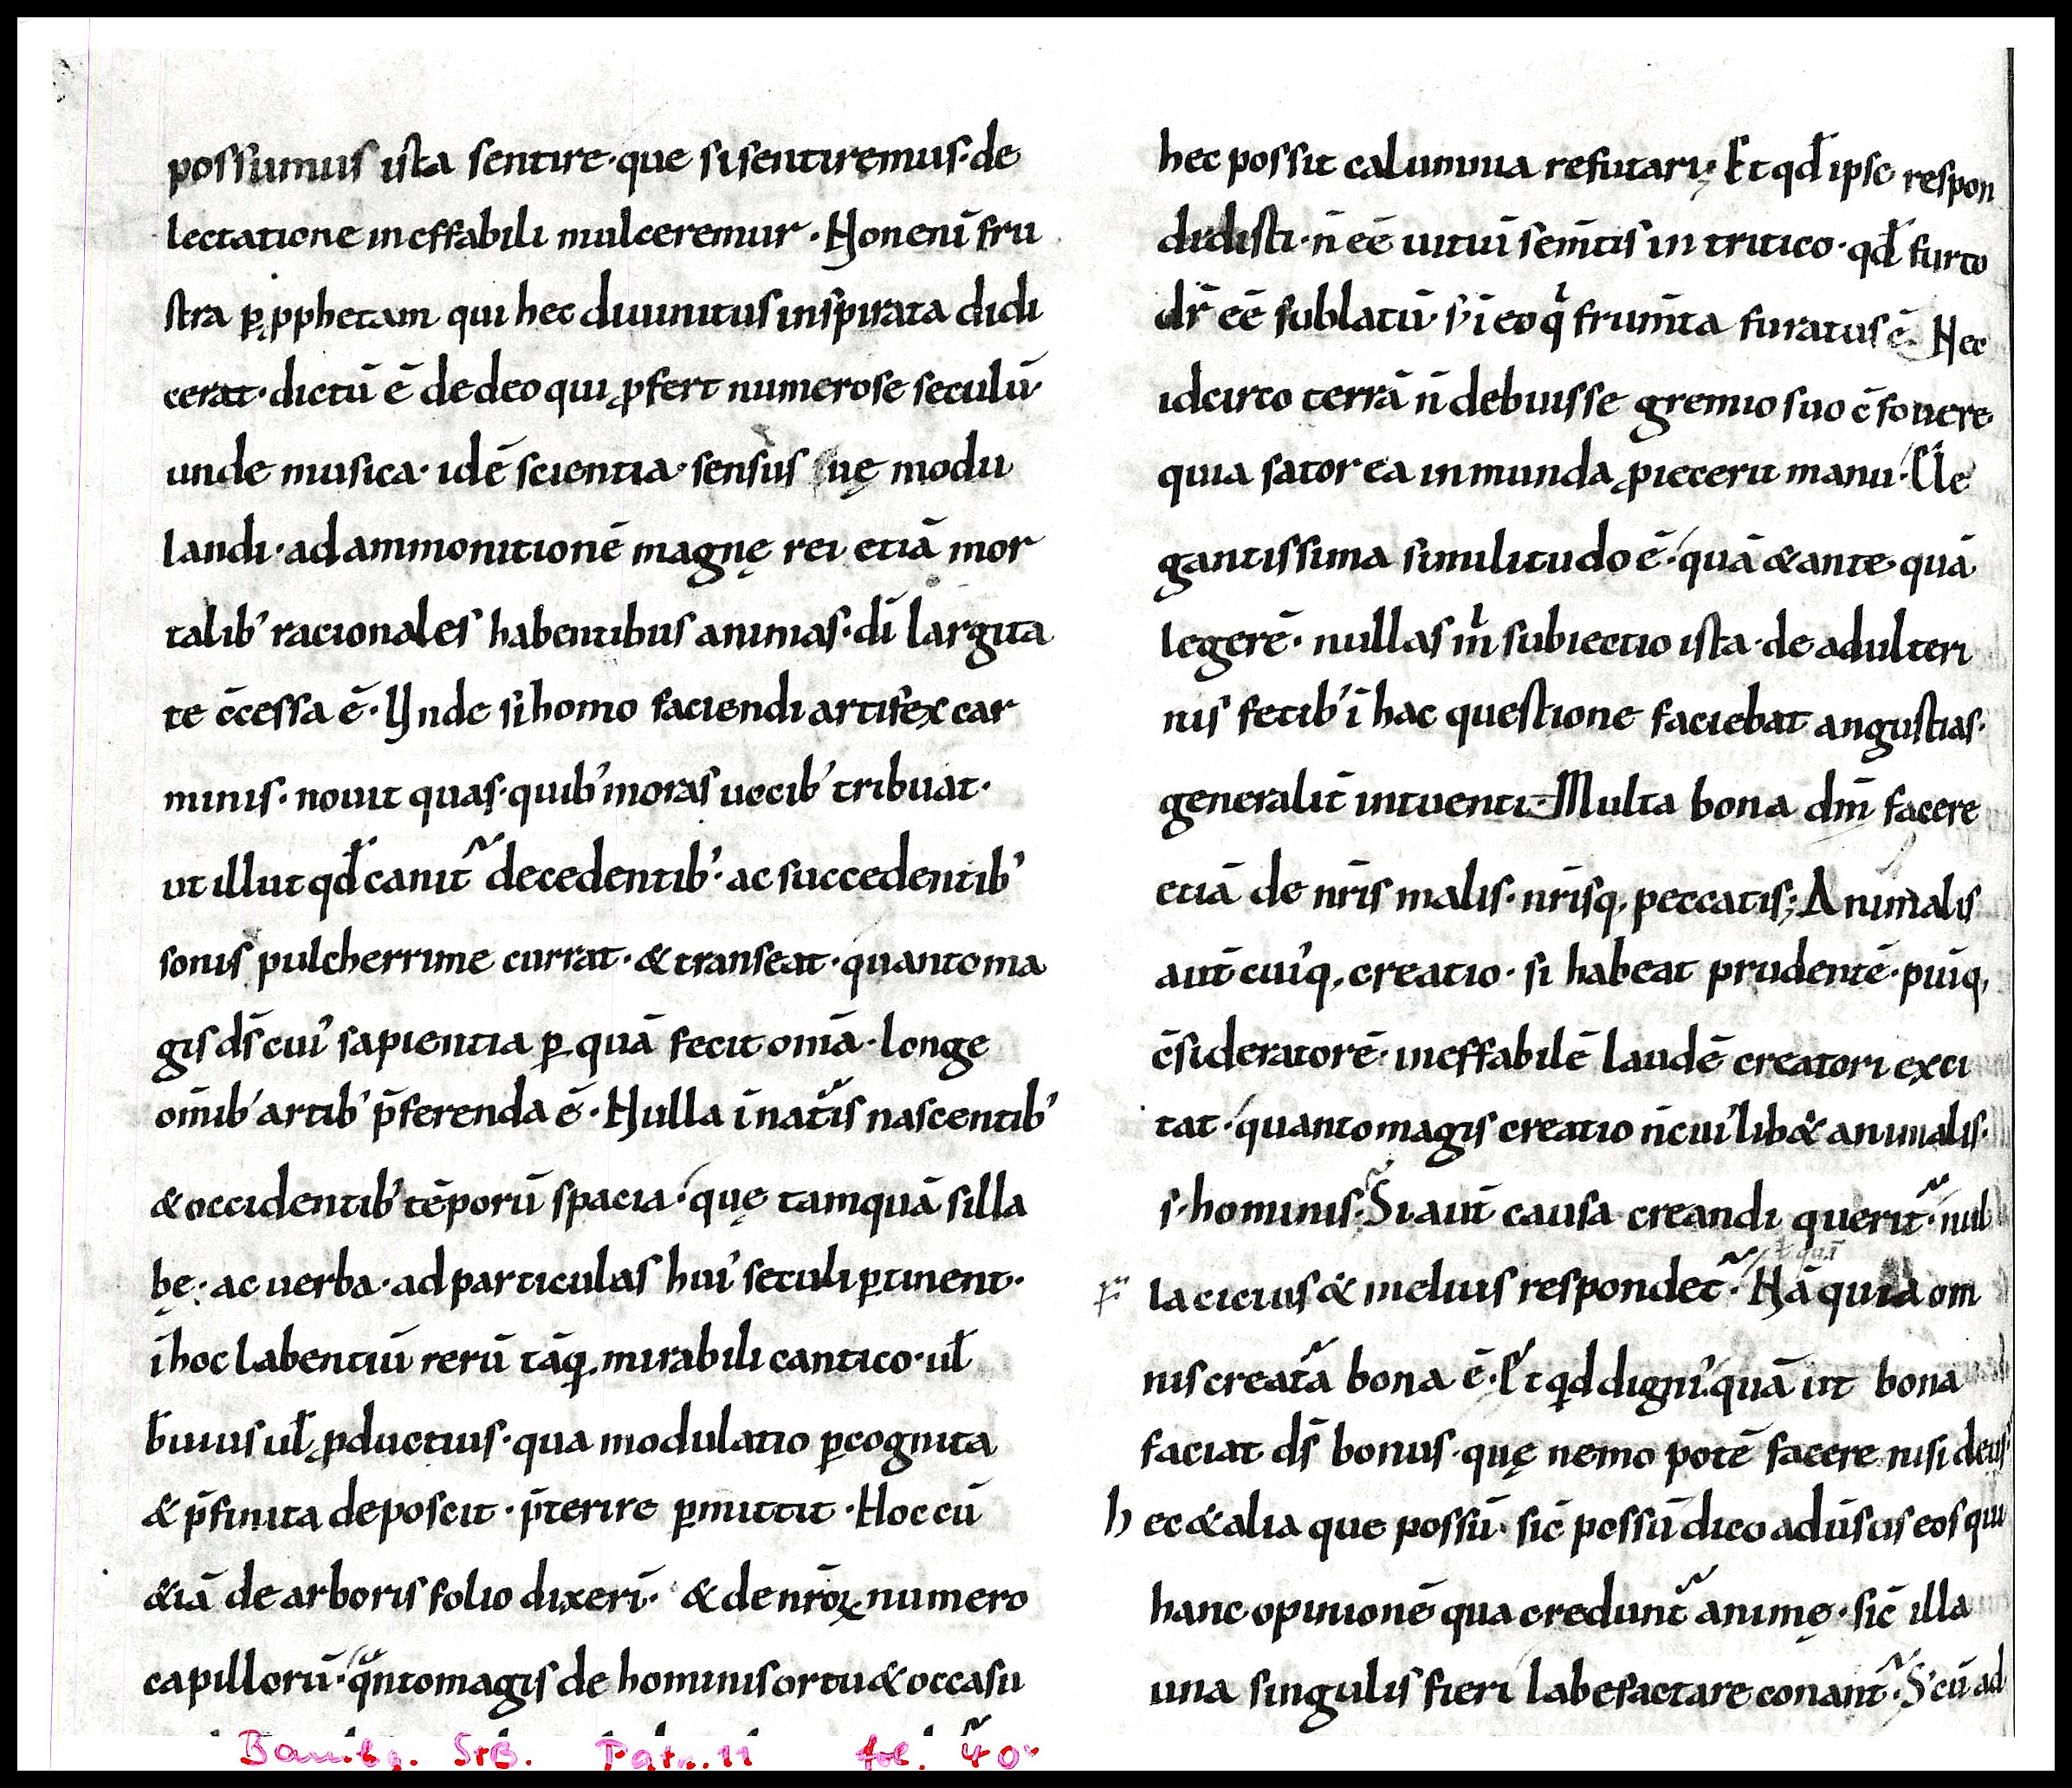 possumus ista sentire· que si sentiremus· de
lectatione ineffabili mulceremur· Non eni̅ fru
stra ꝑ ꝓphetam qui hec diuinitus inspirata didi
cerat· dictu̅ e̅ de deo qui ꝓfert numerose seculu̅·
unde musica· ide̅ scientia· sensus suę modu
landi· ad ammonitione̅ magnę rei etia̅ mor
talib’ racionales habentibus animas· di̅ largita
te c̅cessa e̅· Unde si homo faciendi artifex car
minis· nouit quas· quib’ moras uocib’ tribuat·
ut illut qd̅ canit᷑ decedentib’· ac succedentib’
sonis pulcherrime currat· & transeat· quanto ma
gis ds̅ cui’ sapientia ꝑ qua̅ fecit om̅a· longe
om̅ib’ artib’ p̅ferenda e̅· Nulla i̅ nat᷑is nascentib’
& occidentib’ te̅poru̅ spacia· quę tamqua̅ silla
bę· ac uerba· ad particulas hui’ seculi ꝑtinent·
i̅ hoc labentiu̅ reru̅ ta̅q, mirabili cantico· ul̅
b̅uius ul̅ ꝓductius· qua modulatio p̅cognita
& p̅finita deposcit· p̅terire ꝑmittit· Hoc cu̅
&ia̅ de arboris folio dixeri̅· & de nr̅oꝝ numero
capilloru̅· qͣnto magis de hominis ortu & occasu
hec possit calumnia refutari; Et qd̅ ipse respon
didisti· n̅ ee̅ uitiu̅ sem̅tis in tritico· qd̅ furto
dr̅ ee̅ sublatu̅· s’ i̅ eo qͥ frum̅ta furatus e̅· Nec
idcirco terra̅ n̅ debuisse gremio suo c̅fouere
quia sator ea inmunda ꝓiecerit manu· Ele
gantissima similitudo e̅· qua̅ & ante· qua̅
legere̅· nullas mͪ subiectio ista· de adulteri
nis fetib’ i̅ hac questione faciebat angustias·
generalit̅ intuenti· Multa bona dm̅ facere
etia̅ de nr̅is malis· nr̅isq, peccatis; Animalis
aut̅ cui’q, creatio· si habeat prudente̅· piu̅q,
c̅sideratore̅· ineffabile̅ laude̅ creatori exci
tat· quanto magis creatio n̅ cui’lib& animalis·
s· hominis· Si aut̅ causa creandi querit᷑· nul
la cicius & melius respondet᷑· Na̅ quia om
nis creat᷑a bona e̅· Et qd digni’ qua̅ ut bona
faciat ds̅ bonus· quę nemo pote̅ facere nisi deus
hec & alia que possu̅· sic̅ possu̅ dico adu̅sus eos qui
hanc opinione̅ qua credunt᷑ animę· sic̅ illa
una singulis fieri labefactare conant᷑· S’ cu̅ ad
Bambg. StB. Patr. 11 fol. 40ᵛ